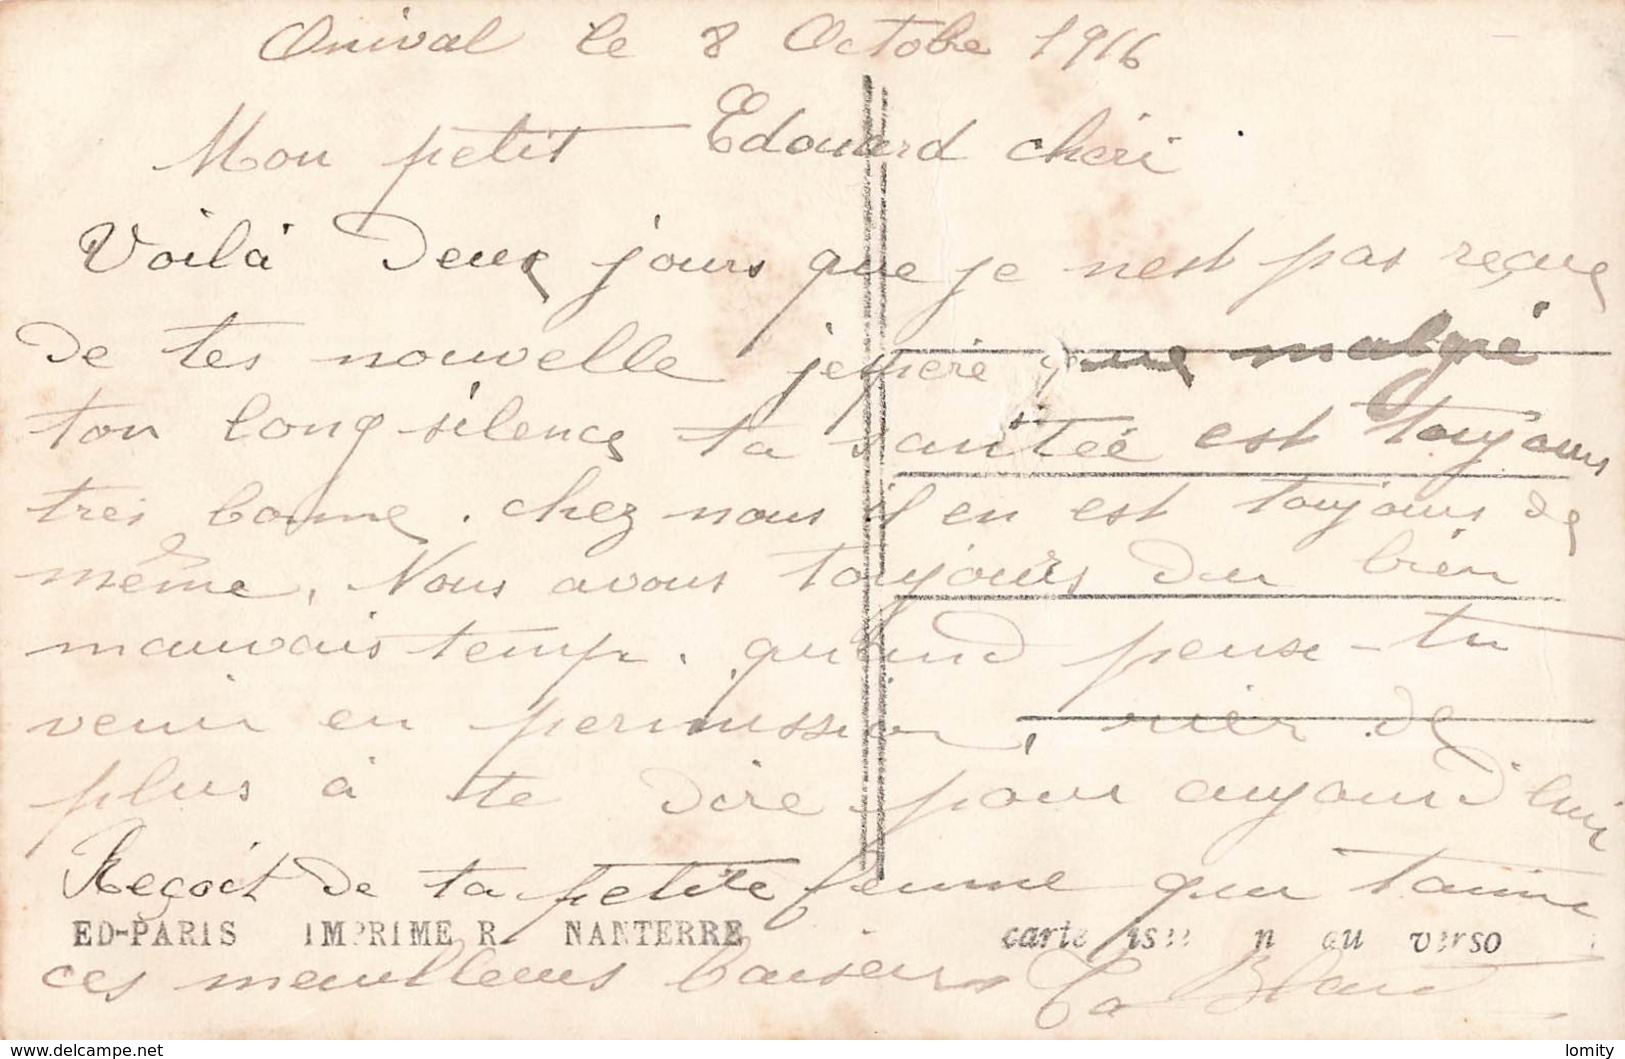 Onival le 8 Octobre 1916
Mon petit Edouard chéri
Voilà Deux jours que je nest pas reçue
de tes nouvelle jespère que malgré
ton long silence ta santée est toujours
très bonne. chez nous il en est toujours de
même. Nous avons toujours du bien
mauvais temp. quand pense-tu
venir en permission, rien de
plus à te dire pour aujourd'hui
Reçoit de ta petite femme qui taime
ED-PARIS IMPRIME R. NANTERRE carte au verso
ces meilleurs baisers Ta Blanc
© delcampe.net lomity